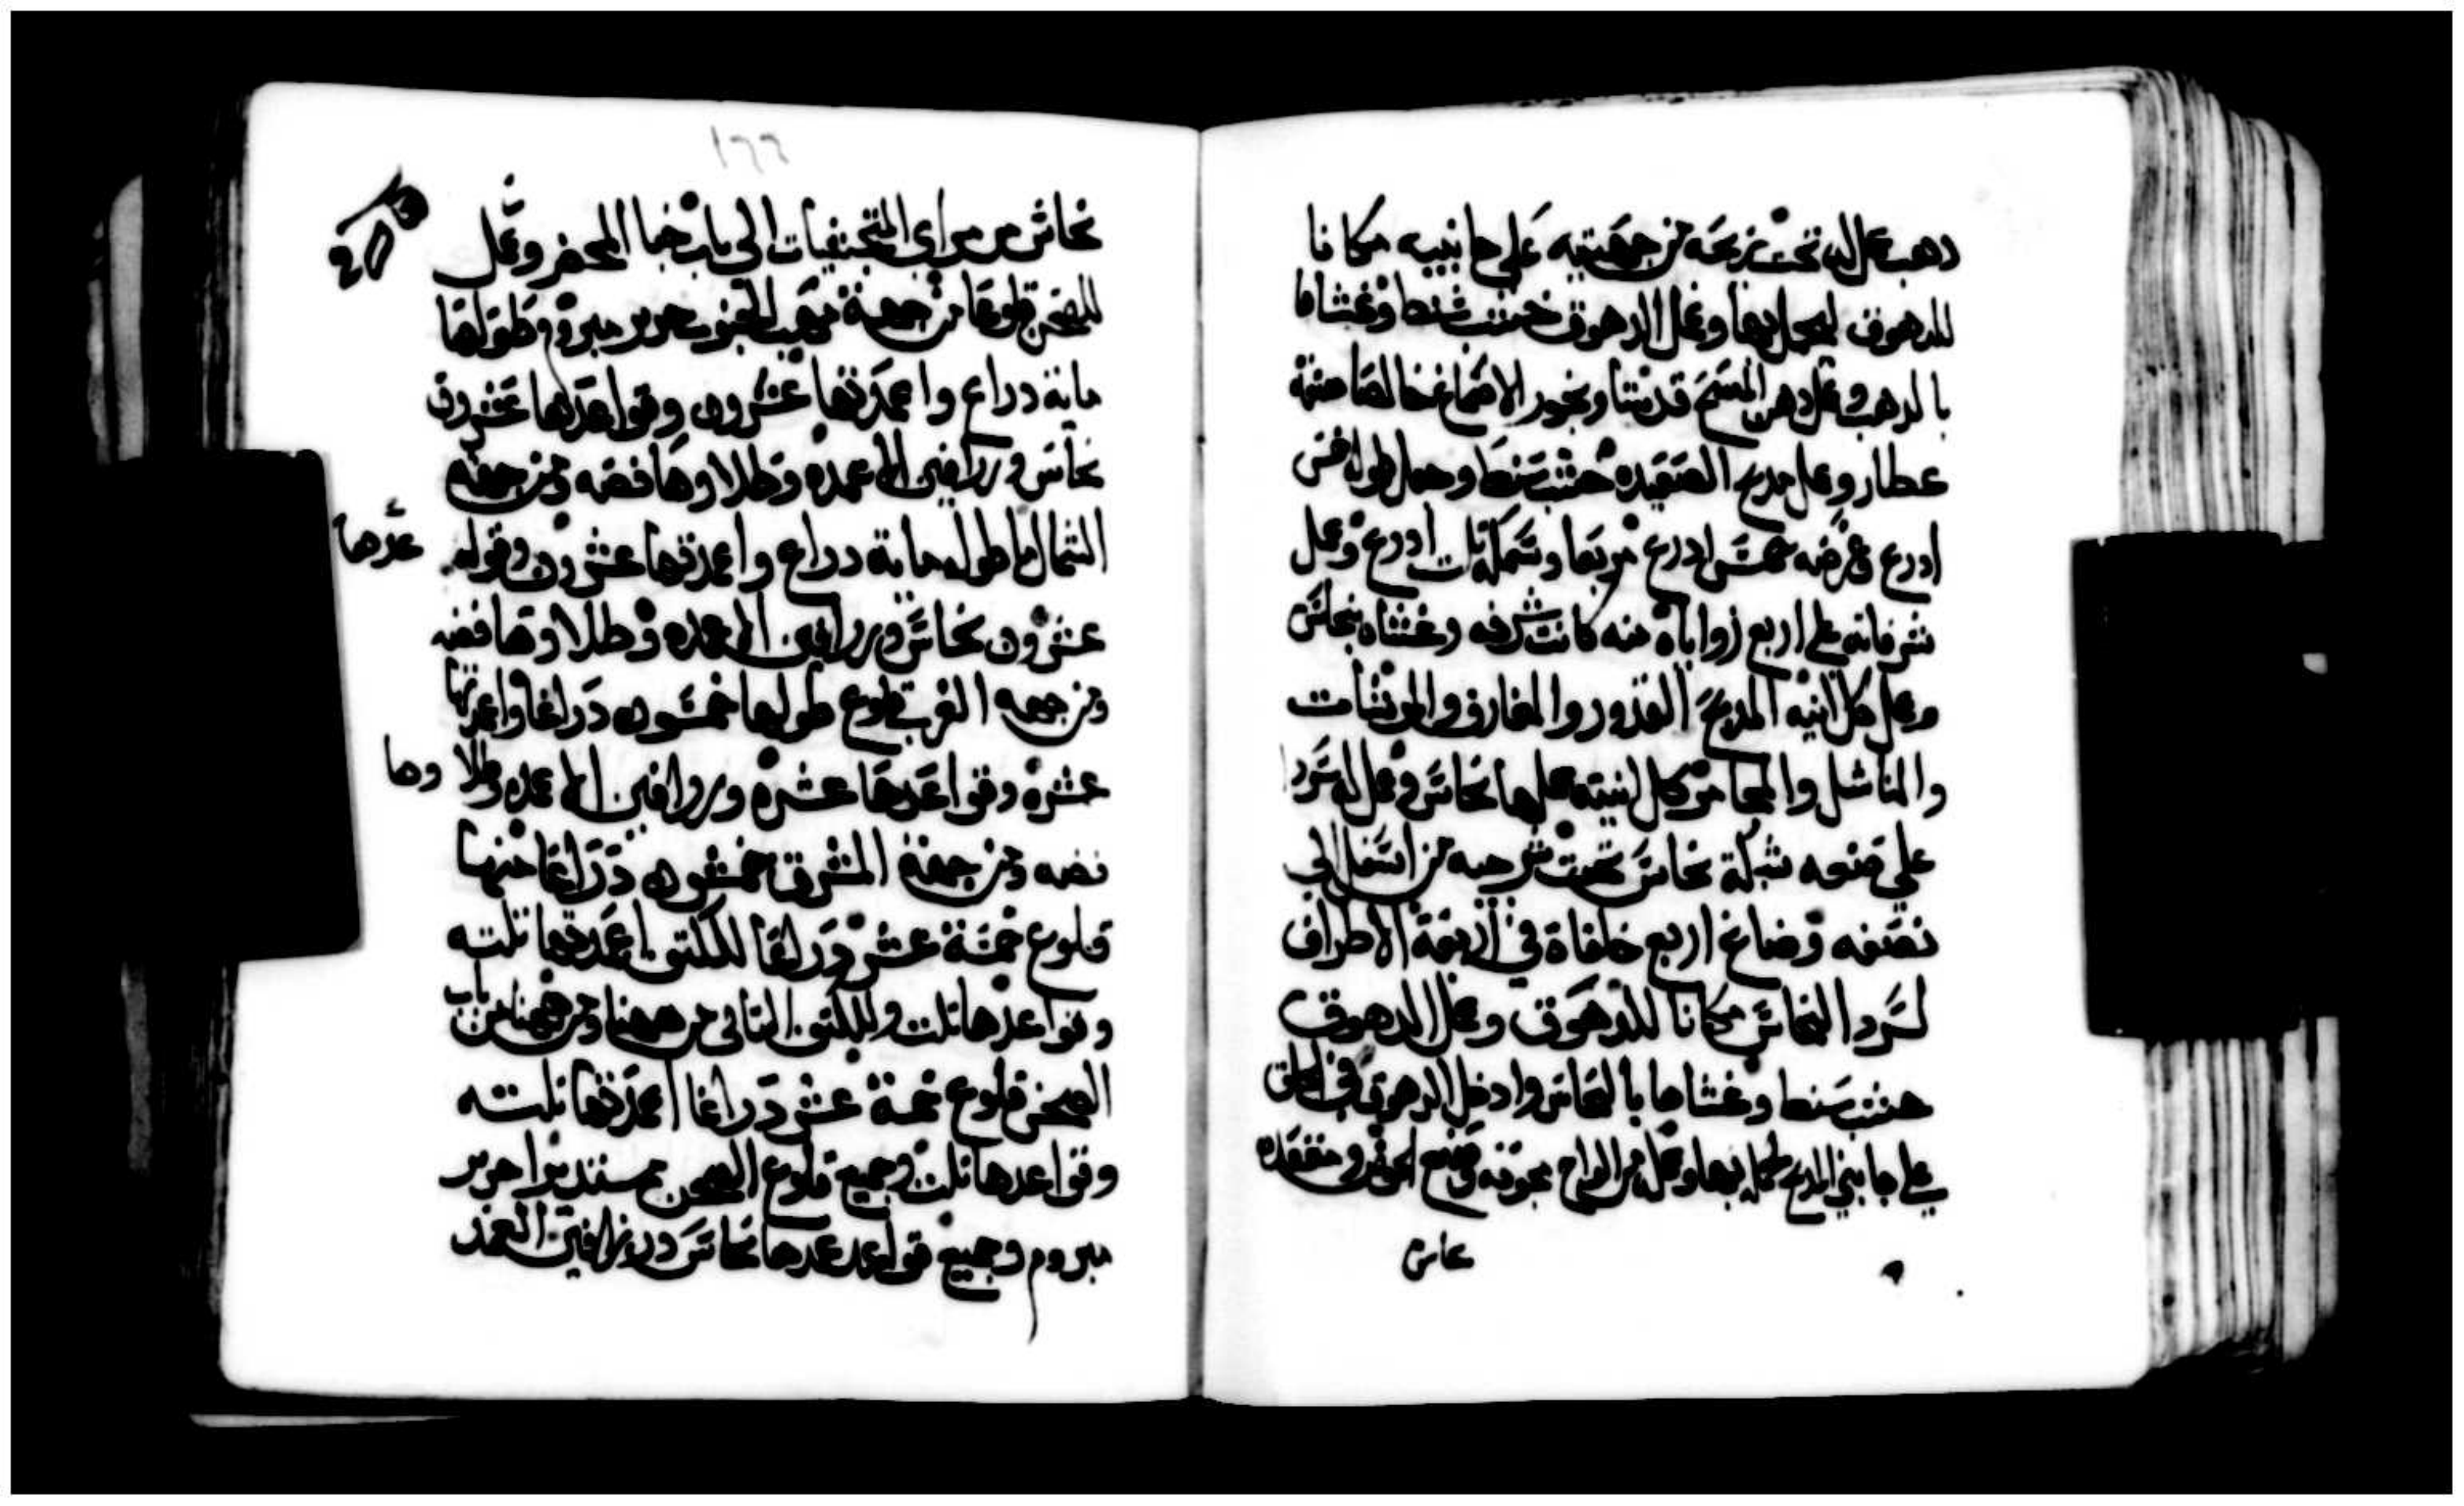 دهب عمل له تحت زيحه من جهتيه على جانبيه مكانا
للدهوق ليحمل بها وعمل الدهوق خشب سنط وغشاها
بالدهب وعمل دهن المسح قدسا وبخور الاصماغ خالصا صنعة
عطار وعمل مدبح الصعيده خشب سنط وجعل طوله خمس
ادرع وعرضه خمس ادرع مربعا وسمكه تلت ادرع وعمل
شرفاته على اربع زواياه منه كانت شرفه وغشاه بنحاس
وعمل كل انية المدبح القدور والمغارف والمرنشات
والمناشل والمجامر كل انيته عملها نحاس وعمل له سرد
على صنعه شبكة نحاس تحت من اسفل الى
نصفه وصاغ اربع حلقاة في اربعة الاطراف
لسرد النحاس مكانا للدهوق وعمل الدهوق
خشب سنط وغشاها بالنحاس وادخل الدهوق في الحلق
على جانبي المدبح ليحمل بها وعمله من الواح مجوفه وصنع الحوض ومقعده
نحاس
١٦٦
نحاس من مراي المتجيشات الى باب خبا المحضر وعمل
للصحن قلوعا من جهة مهب الجنوب حرير مبروم وطولها
ماية دراع واعمدتها عشرون وقواعدها عشرون
نحاس وررافين الاعمده وطلاوها فضه ومن جهة
الشمال ما طوله ماية دراع واعمدتها عشرون وقواعدها
عشرون نحاس وررافين الاعمده وطلاوها فضه
ومن جهه الغرب قلوع طولها خمسون دراعا واعمدتها
عشرة وقواعدها عشرة وررافين الاعمده وطلاوها
فضه ومن جهة المشرق خمسون دراعا منها
قلوع خمسة عشر دراعا للكتف اعمدتها تلته
وقواعدها تلت وللكتف التاني من ههنا ومن ههنا من باب
الصحن قلوع خمسة عشر دراعا اعمدتها تلته
وقواعدها تلت وجميع قلوع الصحن مستديرا حرير
مبروم وجميع قواعد عمدها نحاس وررافين العمد